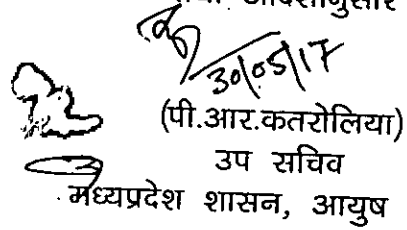 आदेशानुसार
30/05/17
(पी.आर.कतरोलिया)
उप सचिव
मध्यप्रदेश शासन, आयुष